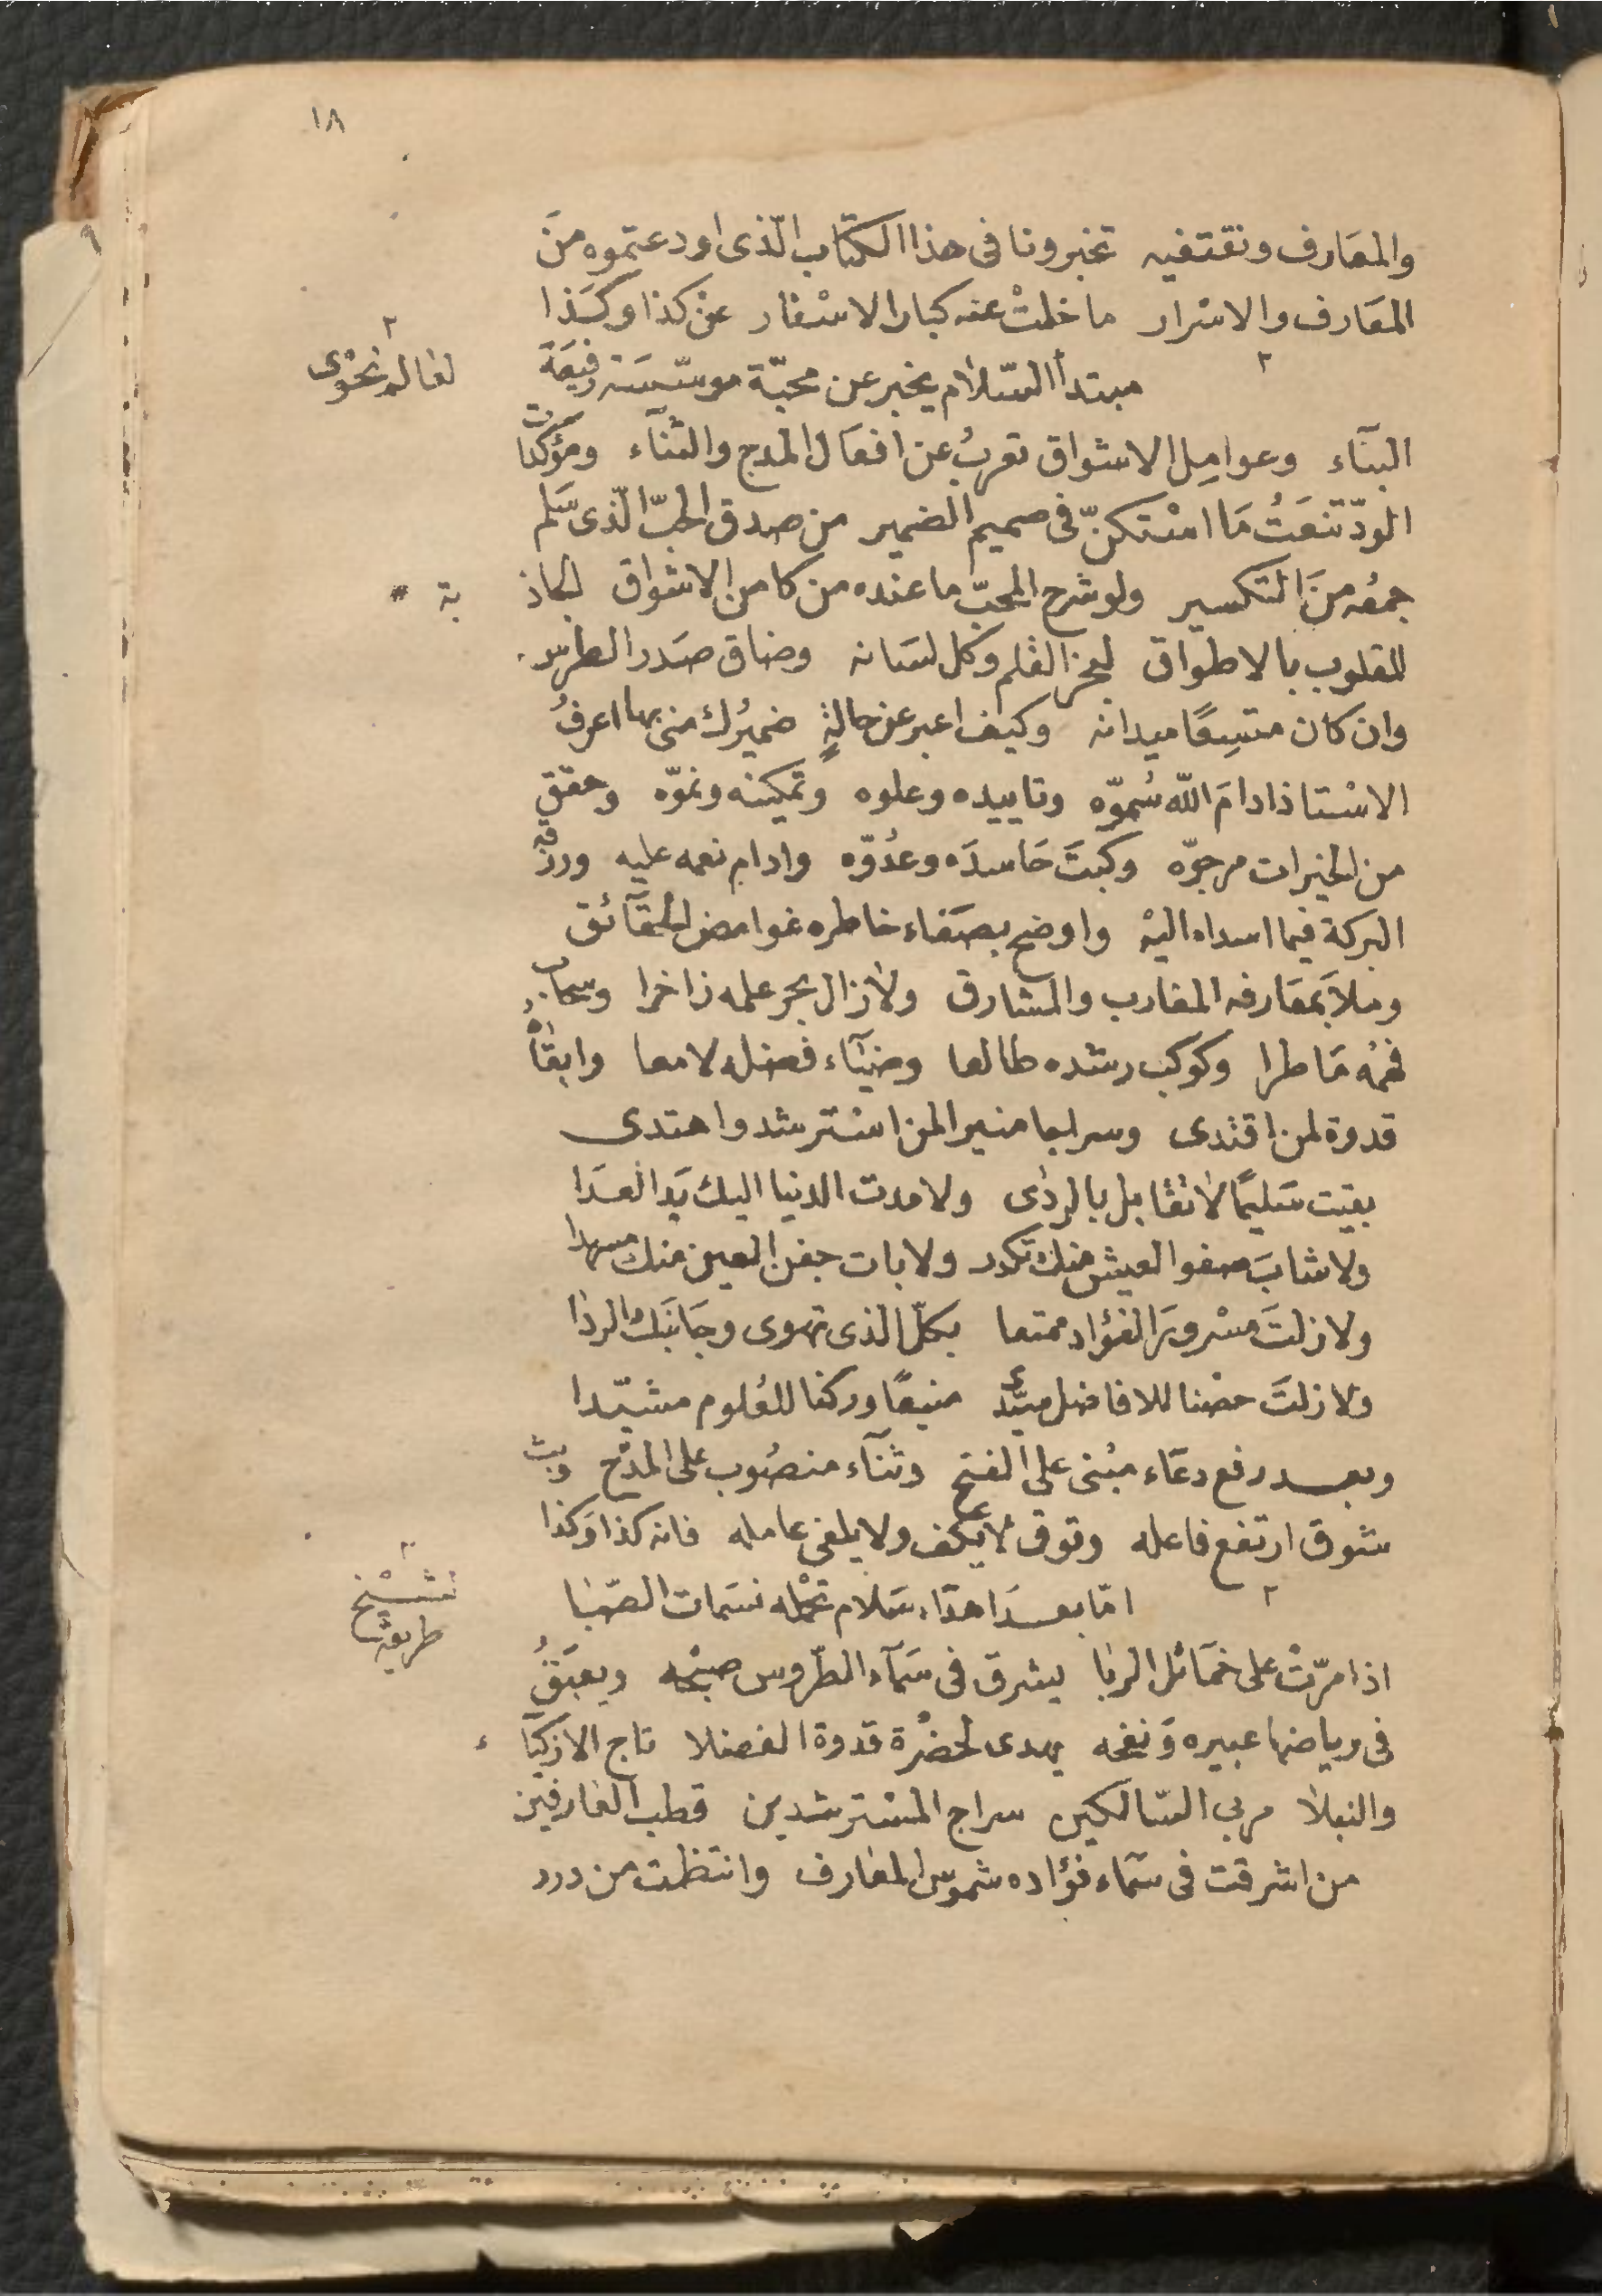 ١٨
والمعَارف ونقتفيه تخبرونا فى هذا الكتاب الّذى اودعتموه منَ
المعَارف والاسْرار ما خلتْ عنه كبار الاسْفار عن كذا وكَذا
مبتدأ السّلام يخبر عن محبّة موسّسَة رفيعَة
لعالم نحْوى
البنآء وعوامِل الاشواق تعربُ عن افعَال المدح والثنآء ومؤكدات
الودّ تنعَتُ مَا اسْتكنّ فى صميم الضمير من صدق الحبّ الّذى سَلم
جمعُه منَ التكسير ولو شرح المحبّ ما عنده من كامن الاشواق الجاذ بة
للقلوب بالاطواق لعجز القلم وكل لسَانه وضاق صَدر الطرس
وان كان متسِعًا ميدانه وكيف اعبر عن حالةٍ ضميرُك منى بها اعرفُ
الاسْتاذ ادامَ اللّه سُموّه وتاييده وعلوه وتمكينه ونموّه وحقق
من الخيرات مرجوّه وكبتَ حَاسدَه وعدُوّه وادام نعمه عليه ورزقه
البركة فيما اسداه اليْه واوضح بصَفاء خاطره غوامض الحقآئق
وملاَ بمعَارفه المغارب والمشارق ولازال بحر علمه زاخرا وسحاب
فهمُه مَاطرا وكوكب رشده طالعا وضيآء فضله لامعا وابقاهُ
قدوة لمن اقتدى وسراجا منيرا لمن اسْترشد واهتدى
بقيت سَليمًا لا تقابل بالردى ولا مدت الدنيا اليك يَد العدَا
ولا شابَ صفو العيش منك تكدر ولا بات جفن العين منك مسهدا
ولا زلتَ مسْرورَ الفؤاد ممتعا بكلّ الذى تهوى وجَانبَك الردا
ولا زلتَ حصْنا للافاضل سيّدى منيعًا وركنا للعُلوم مشيّدا
وبعـد رفع دعَاء مبْنى على الفتح وثنآء منصُوب على المدْح وبث
شوق ارتفع فاعله وتوق لا يكف ولا يلغى عامله فانه كذا وَكذا
امّا بعـد اهدَاء سَلام تحمْله نسَمات الصّبا
لشـيْخ
طريقة
اذا مرّتْ على خمَائل الربا يشرق فى سَمآء الطّروس صبْحُه ويعبَقُ
فى رياضها عبيره وَنفحه يهدى لحضْرة قدوة الفضلا تاج الازكيآء
والنبلا مربى السّالكين سراج المسْترشدين قطب العَارفين
من اشرقت فى سَمَاء فؤاده شموس المعَارف وانتظمت من درر